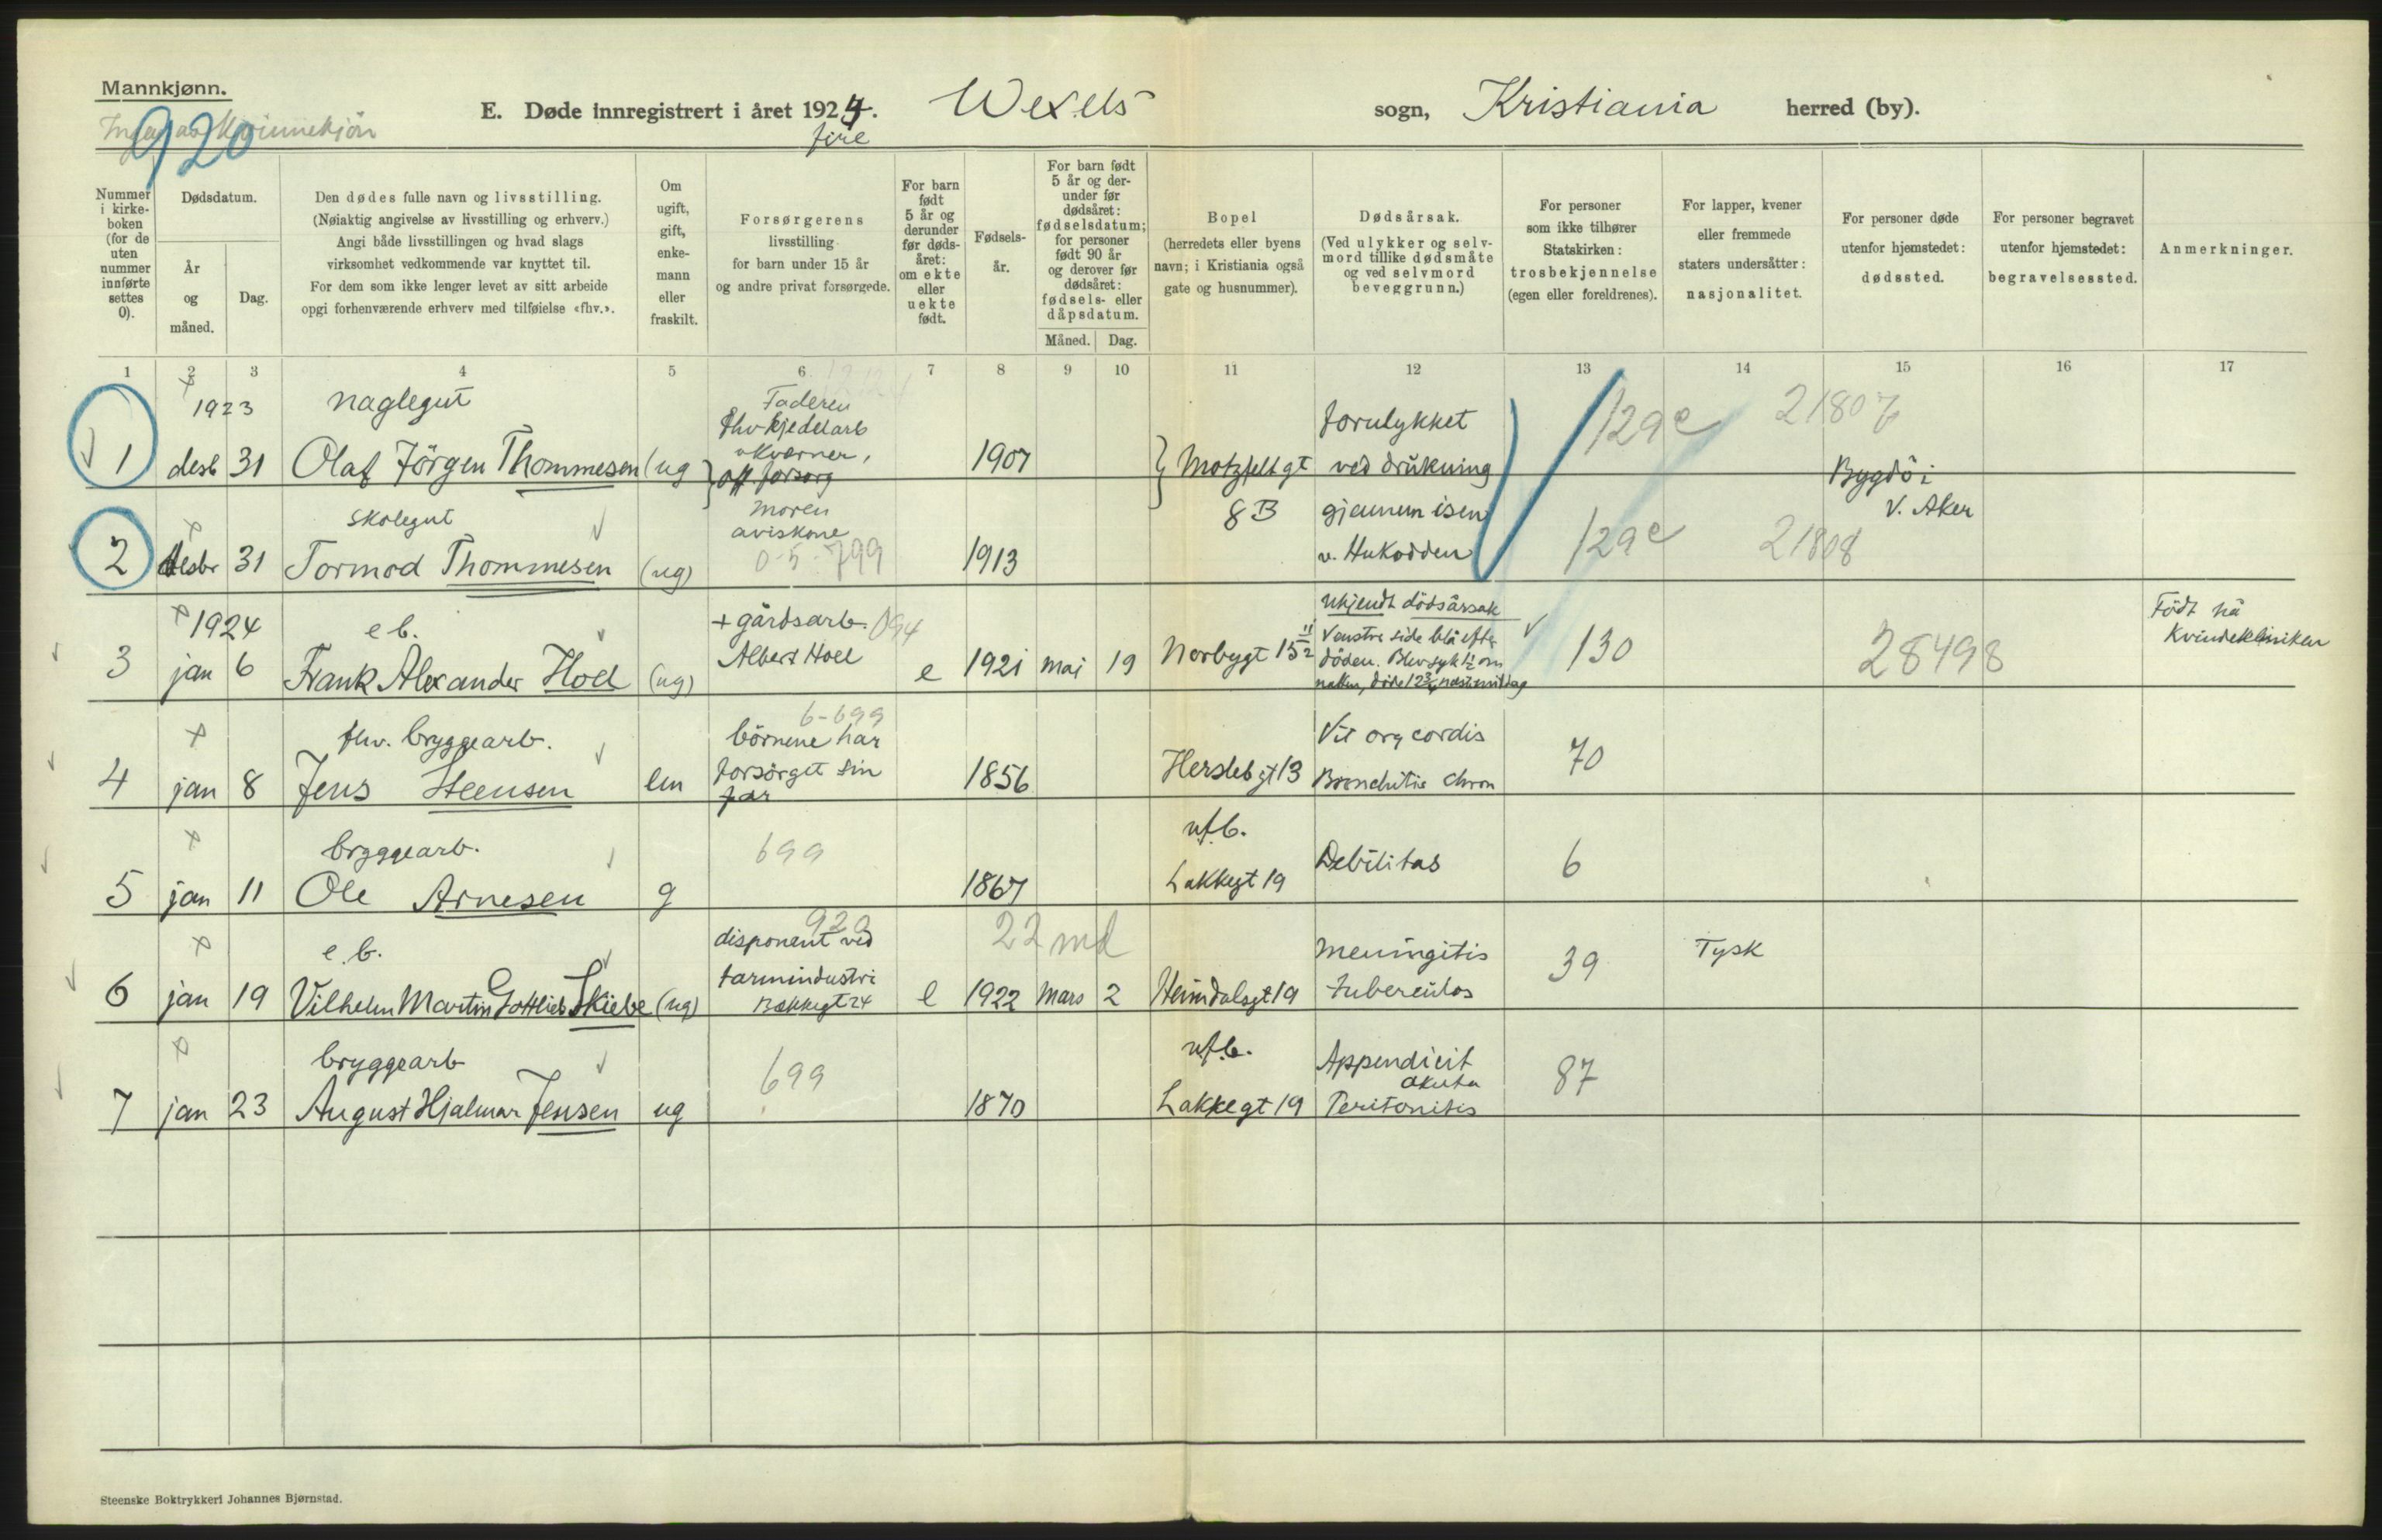 Mannkjønn.
920
E. Døde innregistrert i året 1924. Wexels sogn, Kristiania herred (by).
fire
Nummer i kirkeboken (for de uten nummer innførte settes 0).
Dødsdatum.
År og måned.
Dag.
Den dødes fulle navn og livsstilling.
(Nøiaktig angivelse av livsstilling og erhverv.)
Angi både livsstillingen og hvad slags
virksomhet vedkommende var knyttet til.
For dem som ikke lenger levet av sitt arbeide
opgi forhenværende erhverv med tilføielse «fhv.».
Om ugift, gift, enkemann eller fraskilt.
Forsørgerens
livsstilling
for barn under 15 år
og andre privat forsørgede.
For barn født 5 år og derunder før dødsåret: om ekte eller uekte født.
Fødselsår.
For barn født 5 år og derunder før dødsåret: fødselsdatum; for personer født 90 år og derover før dødsåret: fødsels- eller dåpsdatum.
Måned. Dag.
Bopel
(herredets eller byens
navn; i Kristiania også
gate og husnummer).
Dødsårsak.
(Ved ulykker og selv-
mord tillike dødsmåte
og ved selvmord
beveggrunn.)
For personer
som ikke tilhører
Statskirken:
trosbekjennelse
(egen eller foreldrenes).
For lapper, kvener
eller fremmede
staters undersåtter:
nasjonalitet.
For personer døde
utenfor hjemstedet:
dødssted.
For personer begravet
utenfor hjemstedet:
begravelsessted.
Anmerkninger.
1 2 3 4 5 6 7 8 9 10 11 12 13 14 15 16 17
1923 naglegut Faderen
1 desb 31 Olaf Jörgen Thommesen (ug) 1907 Motzfeltgt 8B
off. forsorg
forulykket
ved drukning
gjennem isen
v. Hukodden
129e 21807
Bygdö i
V. Aker
skolegut moren
aviskone
2 desbr 31 Tormod Thommesen (ug) 0-5-799 1913 129e 21808
1924 e b. + gårdsarb. 094
3 jan 6 Frank Alexander Hoel (ug) Albert Hoel e 1921 mai 19 Norbygt 15
ukjendt dödsårsak
Venstre side blå efter
döden.
130 28498
Födt på
Kvindekliniken
fhv. bryggearb. 6-699
4 jan 8 Jens Steensen em börnene har
forsörget sin
far
1856 Herslebgt 13 Vit org cordis
Bronchitis chron
70
bryggearb. 699
5 jan 11 Ole Arnesen g 1867 ufb.
Lakkegt 19 Debilitas 6
e. b. 920
6 jan 19 Vilhelm Martin Gottlieb Skiebe (ug) disponent ved
tarmindustri
Bakkegt 24
e 1922 mars 2 22 md
Heimdalsgt 19 Meningitis
tuberculos
39 Tysk
bryggearb 699
7 jan 23 August Hjalmar Jensen ug 1870 ufb.
Lakkegt 19 Appendicit
akuta
Peritonitis
87
Steenske Boktrykkeri Johannes Bjørnstad.